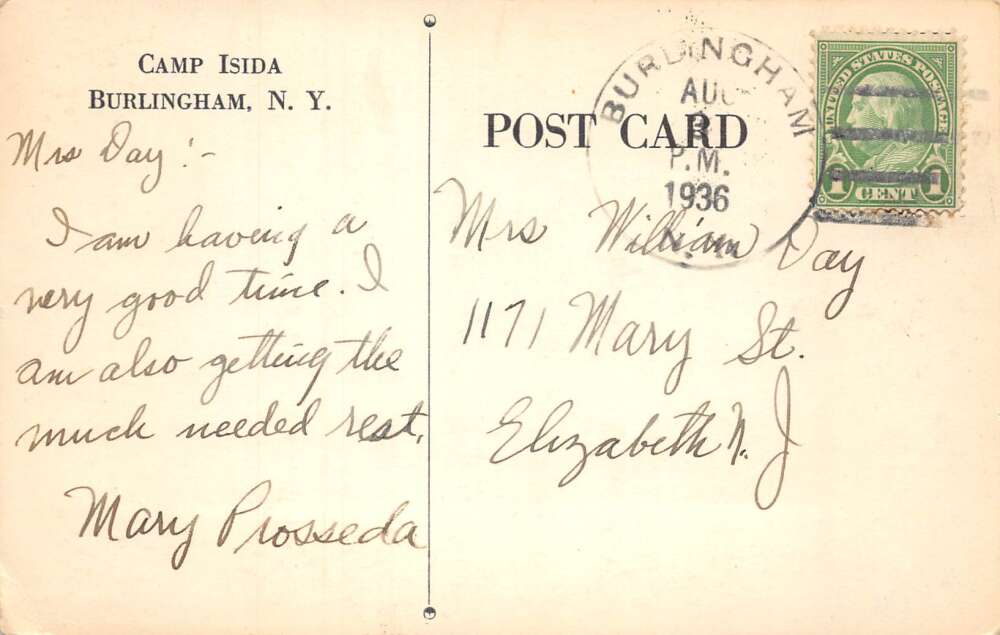 CAMP ISIDA
BURLINGHAM, N. Y.
Mrs Day :-
I am having a
very good time. I
am also getting the
much needed rest.
Mary Prosseda
POST CARD
BURLINGHAM
AUG
P.M.
1936
N. Y.
UNITED STATES POSTAGE
1 CENT 1
Mrs William Day
1171 Mary St.
Elizabeth N. J